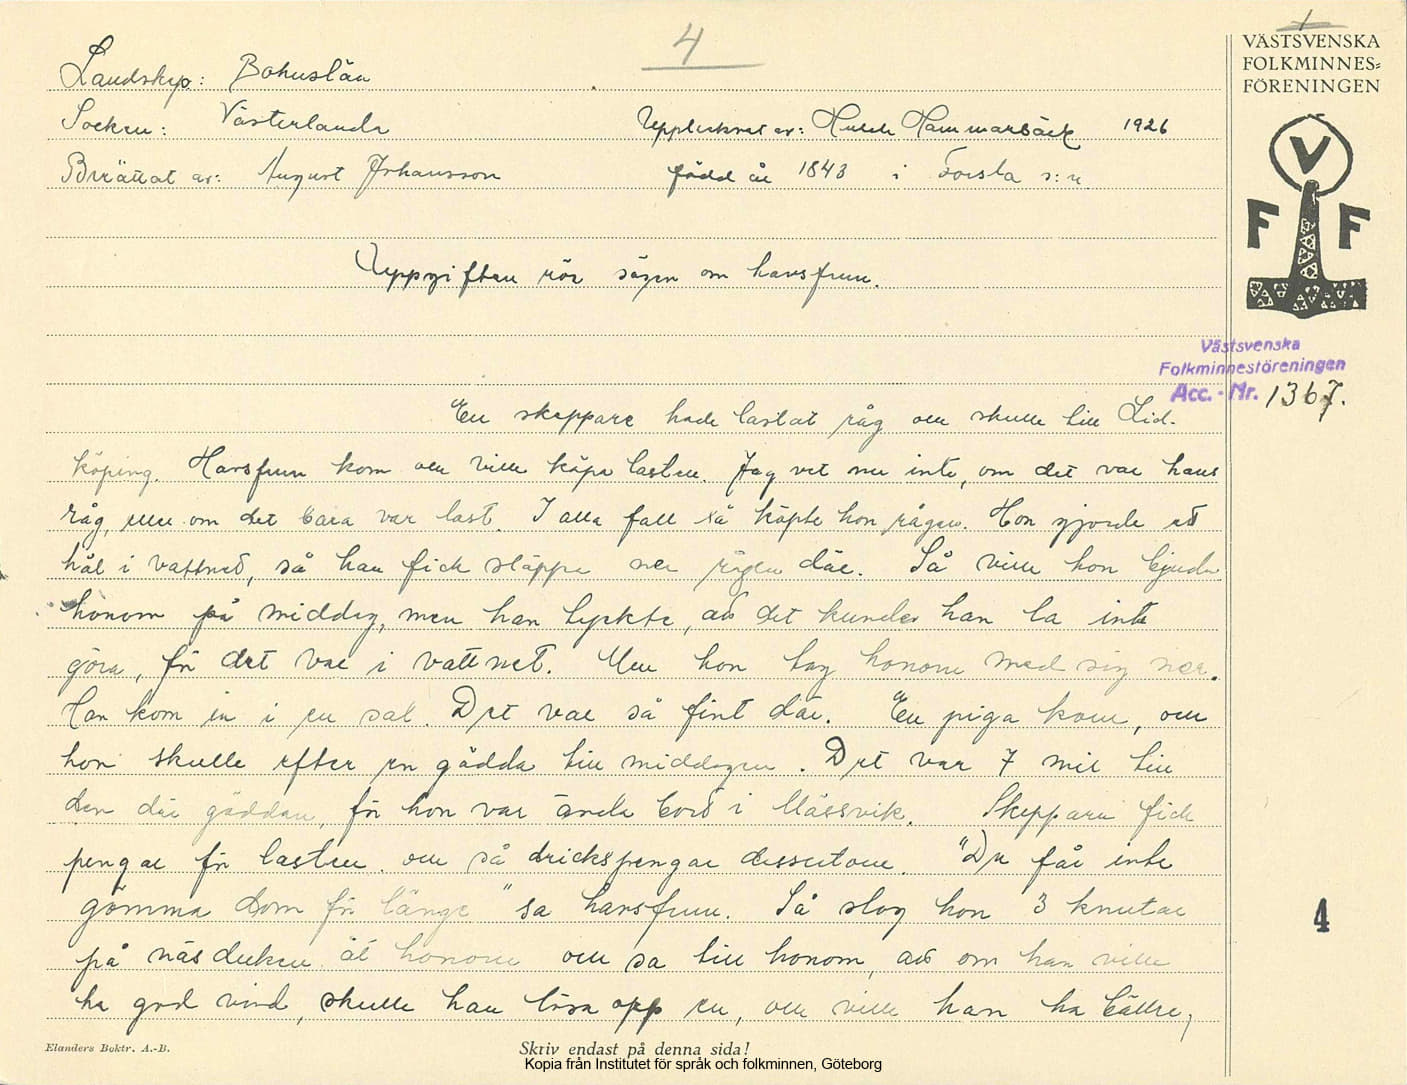 4
VÄSTSVENSKA
FOLKMINNES=
FÖRENINGEN
V
F F
Landskap: Bohuslän
Socken: Västerlanda Upptecknat av: Hulda Hammarbäck 1926
Berättat av: August Johansson född år 1843 i Torsby s:n
Uppgiften rör sägen om havsfrun.
Västsvenska
Folkminnesföreningen
Acc.-Nr. 1367.
En skeppare hade lastat råg och skulle till Lid-
köping. Havsfrun kom och ville köpa lasten. Jag vet nu inte, om det var hans
råg, eller om det bara var last. I alla fall så köpte hon rågen. Hon gjorde ett
hål i vattnet, så han fick släppa ner rågen där. Så ville hon bjuda
honom på middag, men han tyckte, att det kunde han la inte
göra, för det var i vattnet. Men hon tog honom med sig ner.
Han kom in i en sal. Det var så fint där. En piga kom, och
hon skulle efter en gädda till middagen. Det var 7 mil till
den där gäddan, för hon var ända bort i Mässvik. Skepparn fick
pengar för lasten och så drickspengar dessutom. "Du får inte
gömma dom för länge" sa havsfrun. Så slog hon 3 knutar
på näsduken åt honom och sa till honom, att om han ville
ha god vind, skulle han lösa opp en, och ville han ha bättre,
4
Elanders Boktr. A.-B.
Skriv endast på denna sida!
Kopia från Institutet för språk och folkminnen, Göteborg